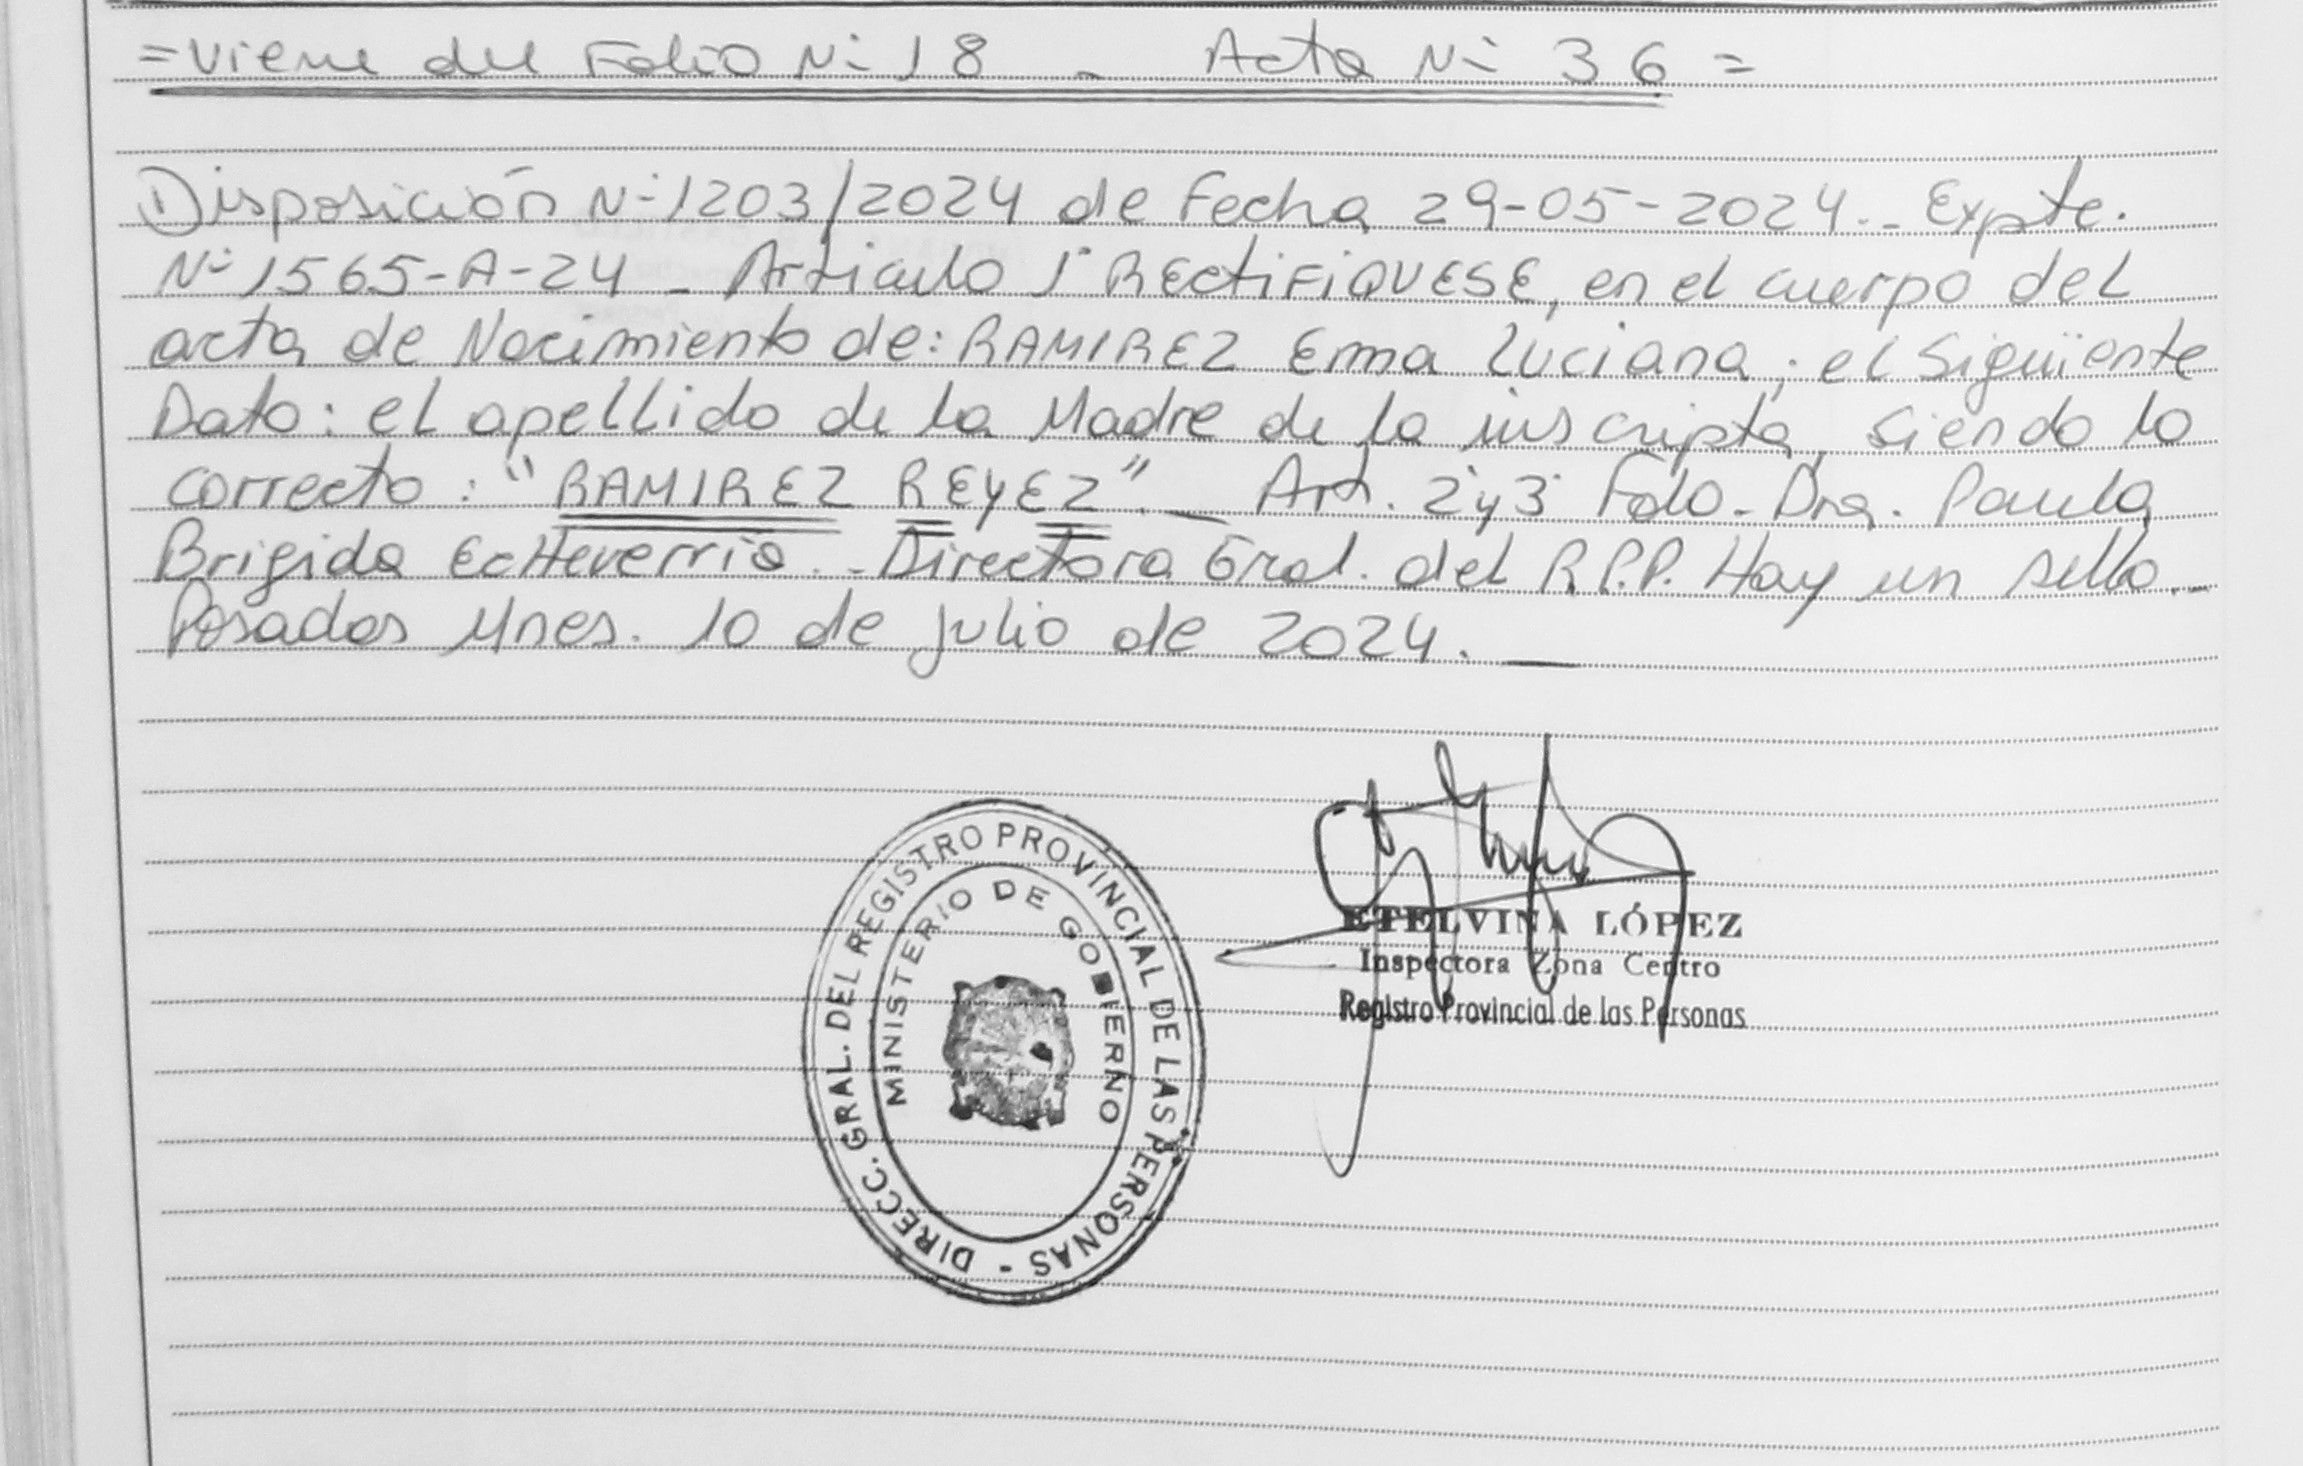 =Viene del Folio Nº 18 - Acta Nº 36=
Disposición Nº 1203/2024 de Fecha 29-05-2024.- Expte.
Nº 1565-A-24 - Articulo 1º RECtiFiQUESE, en el cuerpo del
acta de Nacimiento de: RAMIREZ Emma Luciana; el Siguiente
Dato: el apellido de la Madre de la inscripta, siendo lo
correcto: "RAMIREZ REYEZ".- Art. 2º y 3º Fdo.- Dra. Paula
Brigida EcHeverria.- Directora Gral. del R.P.P. Hay un sello.-
Posadas Mnes. 10 de julio de 2024.-
DIRECC. GRAL. DEL REGISTRO PROVINCIAL DE LAS PERSONAS -
MINISTERIO DE GOBIERNO
ETELVINA LÓPEZ
Inspectora Zona Centro
Registro Provincial de las Personas